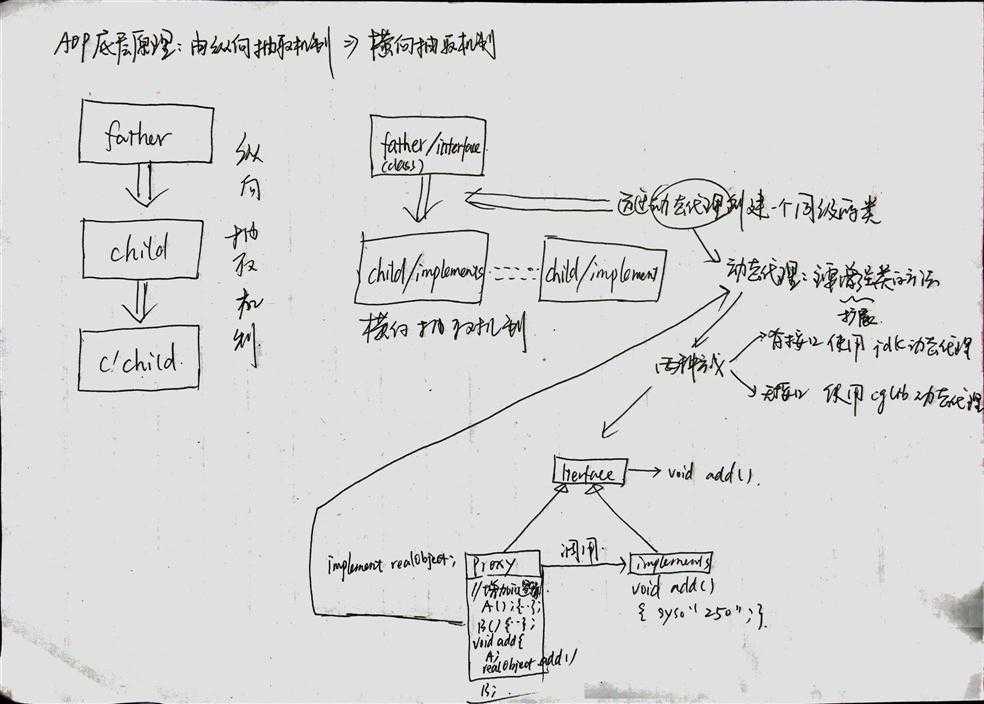 AOP底层原理：由纵向抽取机制 ⇒ 横向抽取机制
father
纵向抽取机制
child
c'child
father/interface
(class)
通过动态代理创建一个同级的类
child/implements
child/implement
横向抽取机制
动态代理：增强类的方法
扩展
两种方式
有接口 使用 jdk动态代理
无接口 使用 cglib动态代理
void add().
implement realObject;
Proxy
调用
implements
A();{··};
B(){··};
void add{
A;
realObject.add()
B;
void add()
{ syso"250";}